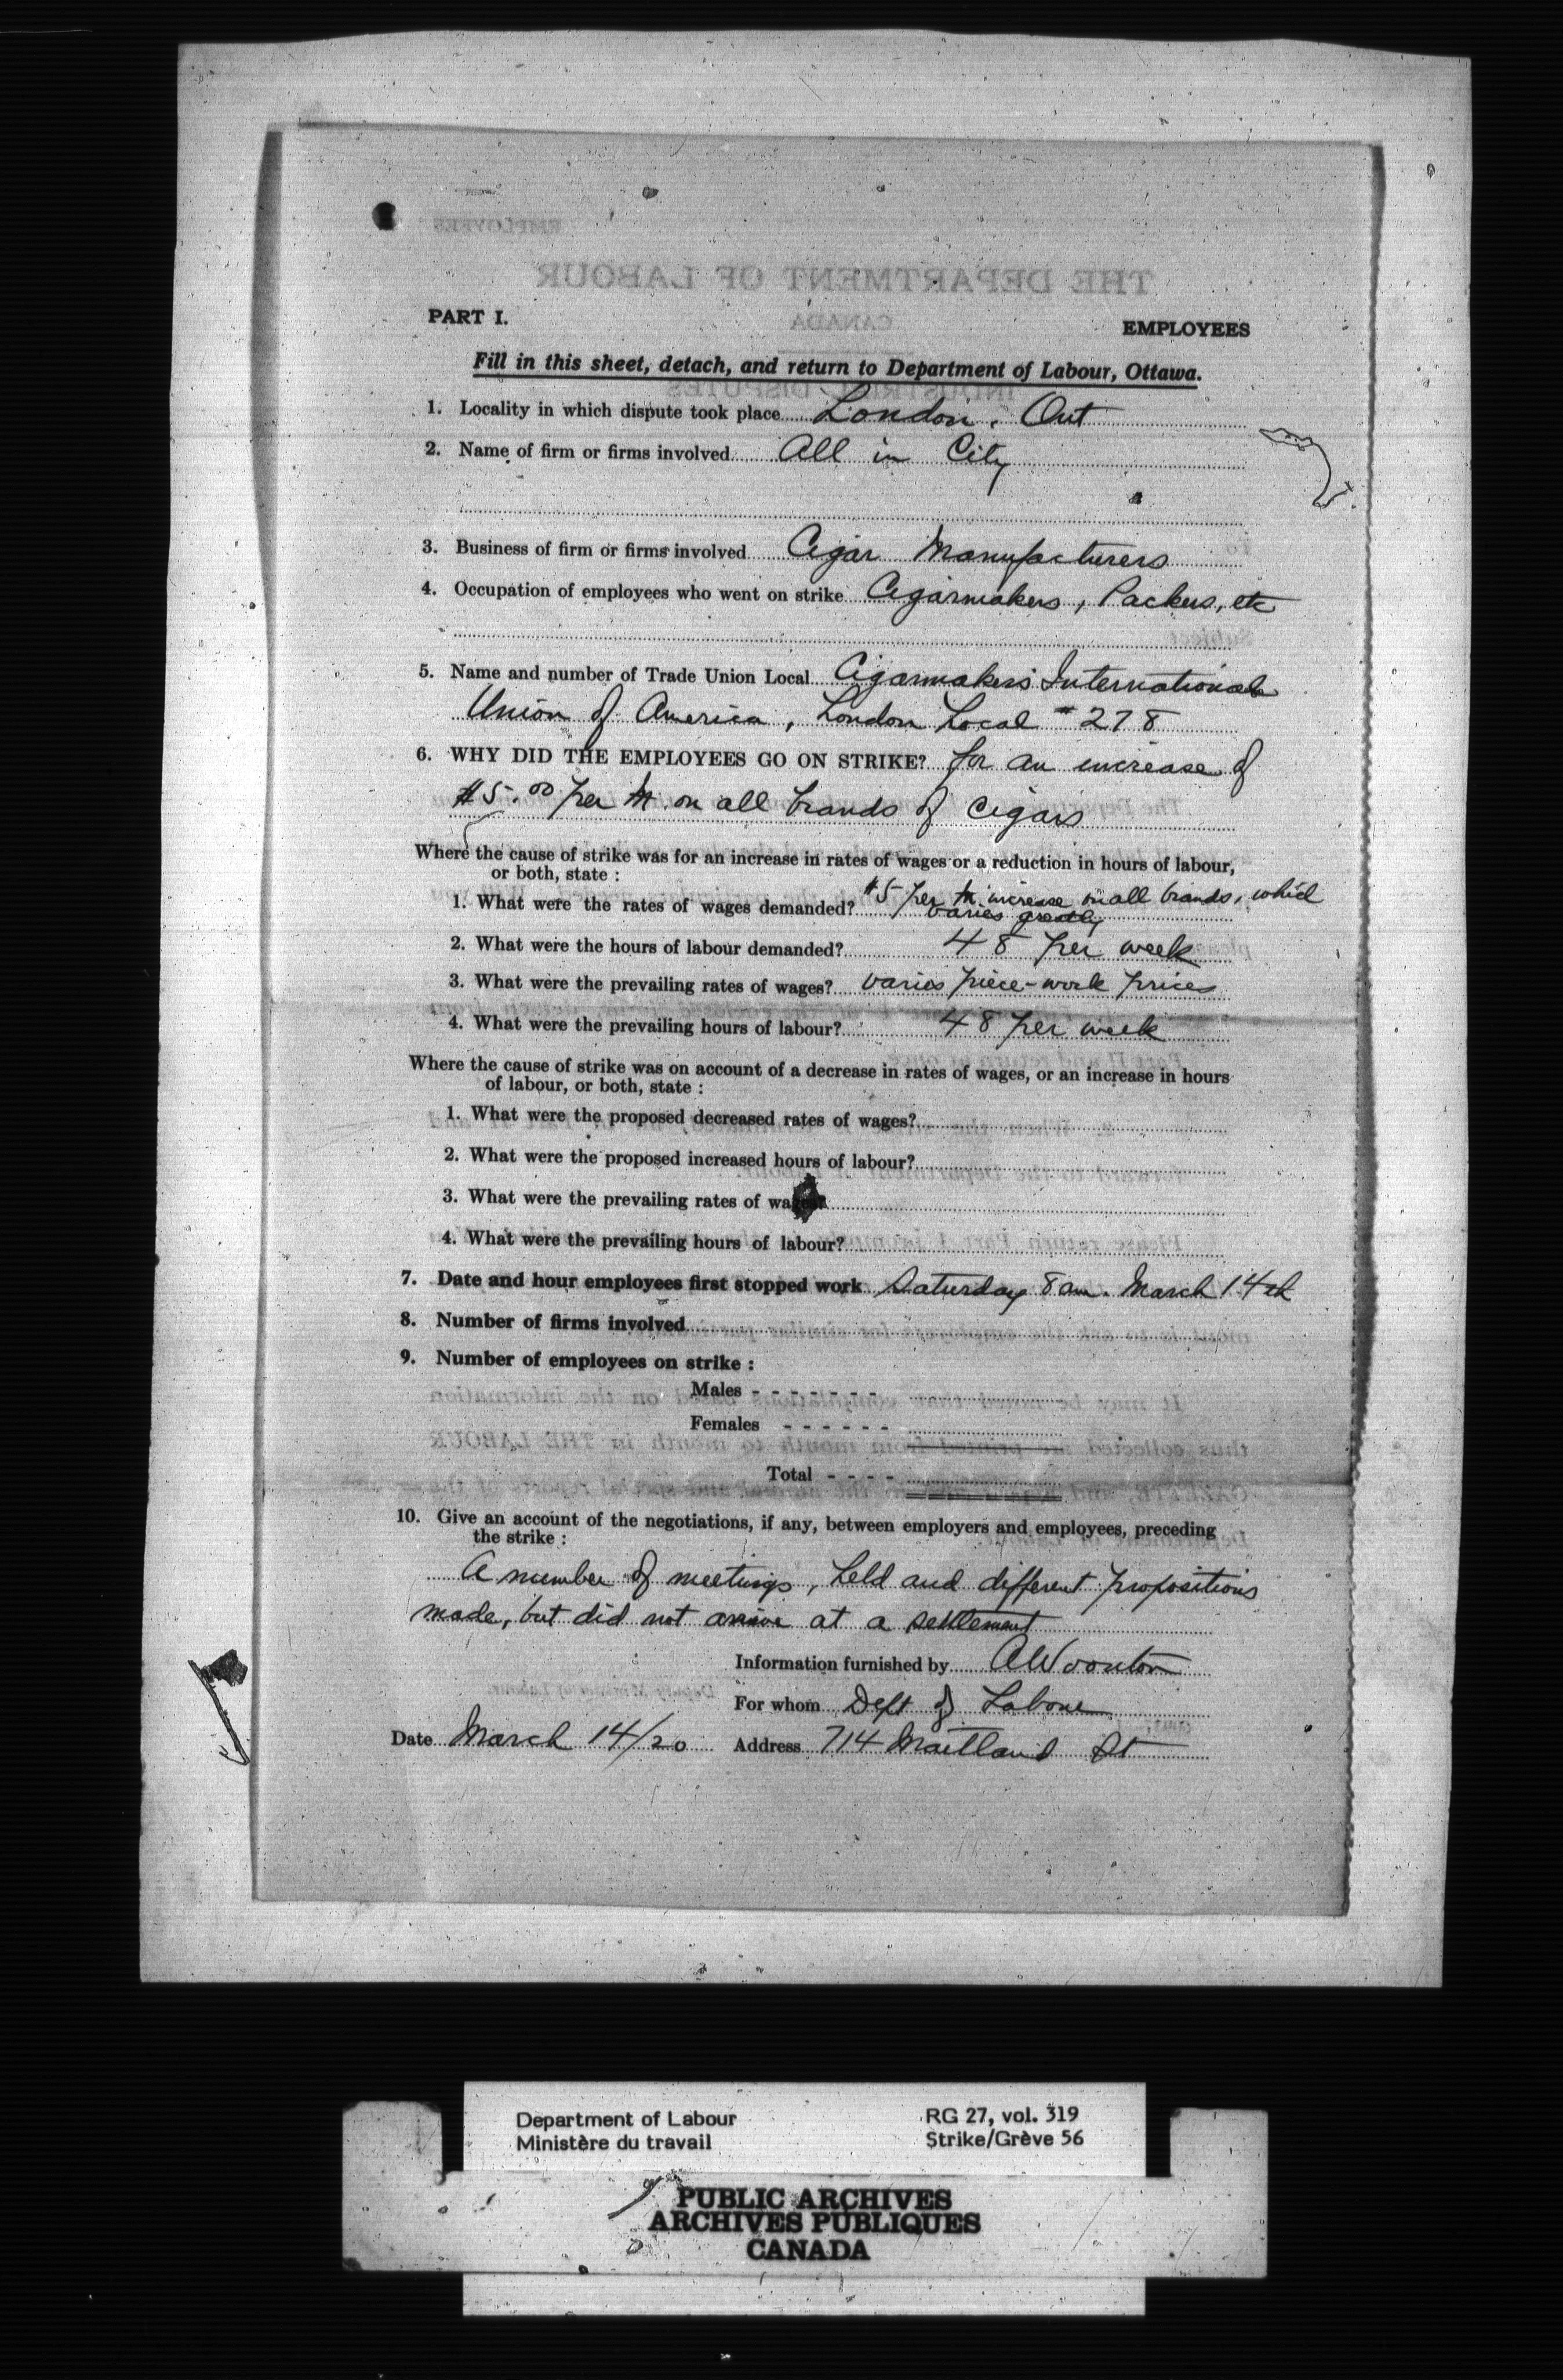 PART I.
EMPLOYEES
Fill in this sheet, detach, and return to Department of Labour, Ottawa.
1. Locality in which dispute took place London, Ont
2. Name of firm or firms involved All in City
3. Business of firm or firms involved Cigar Manufacturers
4. Occupation of employees who went on strike Cigarmakers, Packers, etc
5. Name and number of Trade Union Local Cigarmakers International
Union of America, London Local # 278
6. WHY DID THE EMPLOYEES GO ON STRIKE? for an increase of
$5.00 per M on all brands of cigars
Where the cause of strike was for an increase in rates of wages or a reduction in hours of labour,
or both, state :
1. What were the rates of wages demanded? $5 per M increase on all brands, which
varies greatly
2. What were the hours of labour demanded? 48 per week
3. What were the prevailing rates of wages? varies piece-work prices
4. What were the prevailing hours of labour? 48 per week
Where the cause of strike was on account of a decrease in rates of wages, or an increase in hours
of labour, or both, state :
1. What were the proposed decreased rates of wages?
2. What were the proposed increased hours of labour?
3. What were the prevailing rates of wages?
4. What were the prevailing hours of labour?
7. Date and hour employees first stopped work Saturday 8 am. March 14th
8. Number of firms involved
9. Number of employees on strike :
Males - - - - - - -
Females - - - - - -
Total - - - -
10. Give an account of the negotiations, if any, between employers and employees, preceding
the strike :
A number of meetings, held and different propositions
made, but did not arrive at a settlement
Information furnished by A Woonton
For whom Dept of Labour
Date March 14/20 Address 714 Maitland St
Department of Labour
Ministère du travail
RG 27, vol. 319
Strike/Grève 56
PUBLIC ARCHIVES
ARCHIVES PUBLIQUES
CANADA